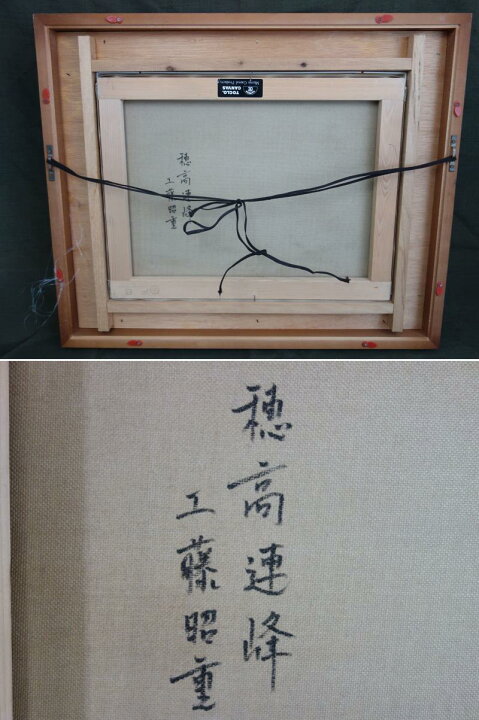 TOCLO.
CANVAS
穂高連峰
工藤昭重
穂高連峰
工藤昭重